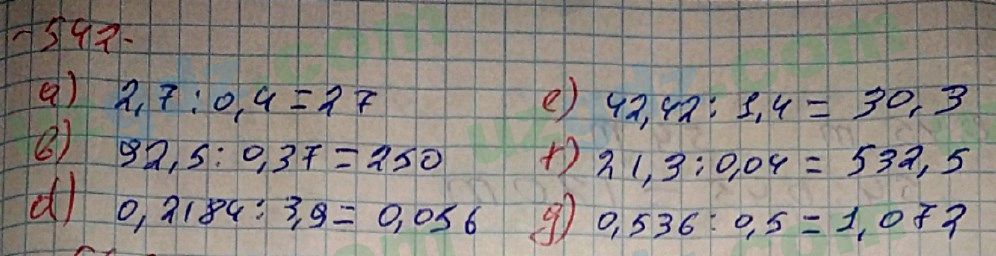 -542-
a) 2,7 : 0,4 = 27
b) 92,5 : 0,37 = 250
d) 0,2184 : 3,9 = 0,056
e) 42,42 : 1,4 = 30,3
f) 21,3 : 0,04 = 532,5
g) 0,536 : 0,5 = 1,072